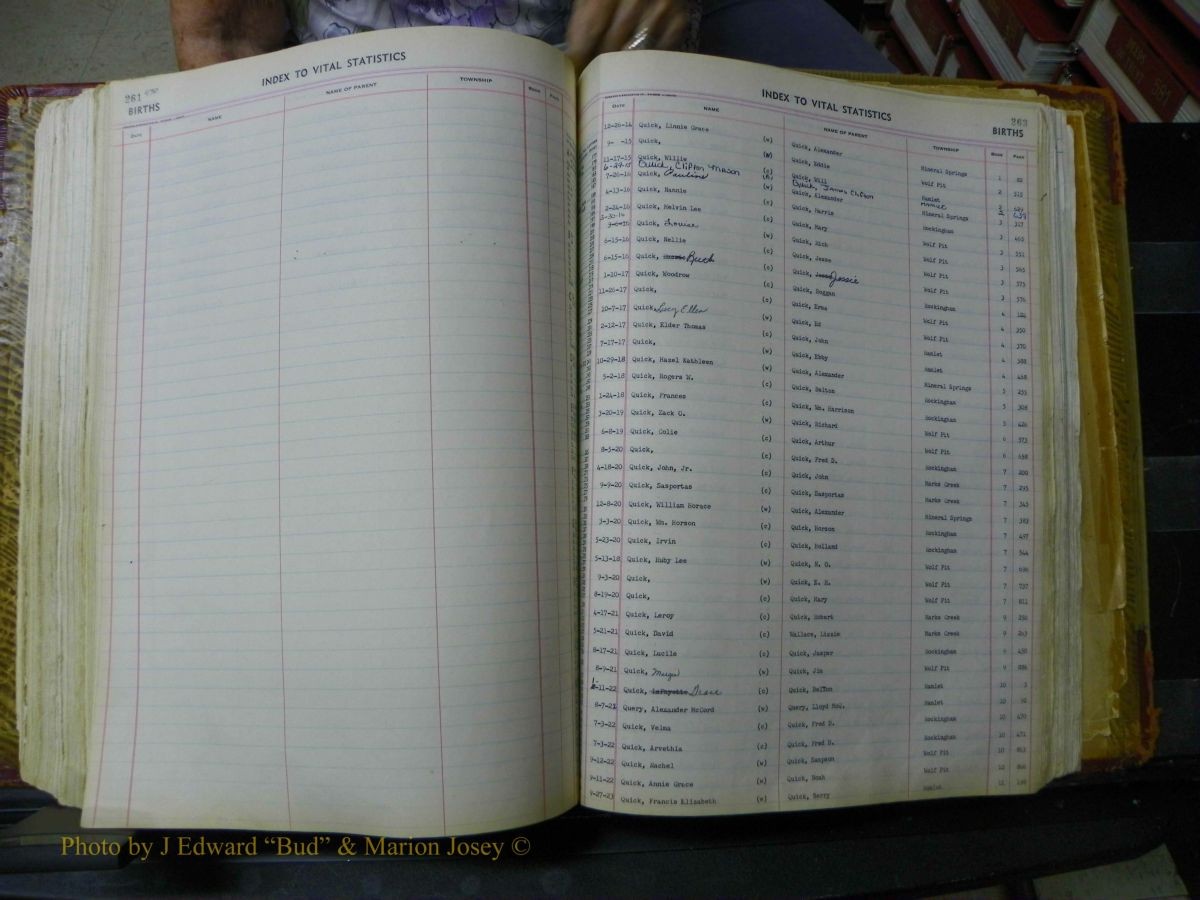 261
BIRTHS
INDEX TO VITAL STATISTICS
Date NAME NAME OF PARENT TOWNSHIP BOOK PAGE
INDEX TO VITAL STATISTICS
263
BIRTHS
Date NAME NAME OF PARENT TOWNSHIP BOOK PAGE
12-26-14 Quick, Linnie Grace (w) Quick, Alexander Mineral Springs 1 82
9- -15 Quick, (W) Quick, Eddie Wolf Pit 2 515
11-17-15 Quick, Willie (c) Quick, Will Hamlet 2 629
6-29-15 Quick, Clifton Mason Quick, James Clifton Hamlet 2 639
7-26-16 Quick, Pauline (w) Quick, Alexander Mineral Springs 3 317
4-13-16 Quick, Nannie (c) Quick, Harris Rockingham 3 460
2-24-16 Quick, Melvin Lee (c) Quick, Mary Wolf Pit 3 551
3-30-16
Quick, Louise (w) Quick, Rich Wolf Pit 3 565
6-15-16 Quick, Nellie (c) Quick, Jesse Wolf Pit 3 575
6-15-16 Quick, Buck (c) Quick, Jessie Wolf Pit 3 576
1-10-17 Quick, Woodrow (c) Quick, Doggan Rockingham 4 104
11-26-17 Quick, (c) Quick, Erna Wolf Pit 4 350
10-7-17 Quick, Lucy Ellen (w) Quick, Ed Wolf Pit 4 370
2-12-17 Quick, Elder Thomas (c) Quick, John Hamlet 4 388
7-17-17 Quick, (w) Quick, Ebby Hamlet 4 458
10-29-18 Quick, Hazel Kathleen (w) Quick, Alexander Mineral Springs 5 255
5-2-18 Quick, Rogers W. (c) Quick, Dalton Rockingham 5 308
1-24-18 Quick, Frances (c) Quick, Wm. Harrison Rockingham 5 426
3-20-19 Quick, Zack O. (w) Quick, Richard Wolf Pit 6 373
6-8-19 Quick, Colie (c) Quick, Arthur Wolf Pit 6 458
8-5-20 Quick, (c) Quick, Fred D. Rockingham 7 200
4-18-20 Quick, John, Jr. (c) Quick, John Marks Creek 7 295
9-9-20 Quick, Sasportas (c) Quick, Sasportas Marks Creek 7 345
12-8-20 Quick, William Horace (w) Quick, Alexander Mineral Springs 7 383
3-3-20 Quick, Wm. Horson (c) Quick, Horson Rockingham 7 497
5-23-20 Quick, Irvin (c) Quick, Holland Rockingham 7 544
5-13-18 Quick, Ruby Lee (w) Quick, N. O. Wolf Pit 7 696
9-3-20 Quick, (w) Quick, E. H. Wolf Pit 7 737
8-19-20 Quick, (c) Quick, Mary Wolf Pit 7 811
4-17-21 Quick, Leroy (c) Quick, Robert Marks Creek 9 250
5-21-21 Quick, David (c) Wallace, Lizzie Marks Creek 9 263
8-17-21 Quick, Lucile (c) Quick, Jasper Rockingham 9 450
8-9-21 Quick, (w) Quick, Jim Wolf Pit 9 886
-11-22 Quick, LaFayette Grace (c) Quick, Dalton Hamlet 10 3
8-7-21 Query, Alexander McCord (w) Query, Lloyd McQ. Hamlet 10 50
7-3-22 Quick, Velma (c) Quick, Fred D. Rockingham 10 470
7-3-22 Quick, Arvethia (c) Quick, Fred D. Rockingham 10 471
9-12-22 Quick, Rachel (w) Quick, Sampson Wolf Pit 10 863
9-11-22 Quick, Annie Grace (w) Quick, Noah Wolf Pit 10
9-27-23 Quick, Francis Elizabeth (w) Quick, Berry Hamlet
Photo by J Edward "Bud" & Marion Josey ©